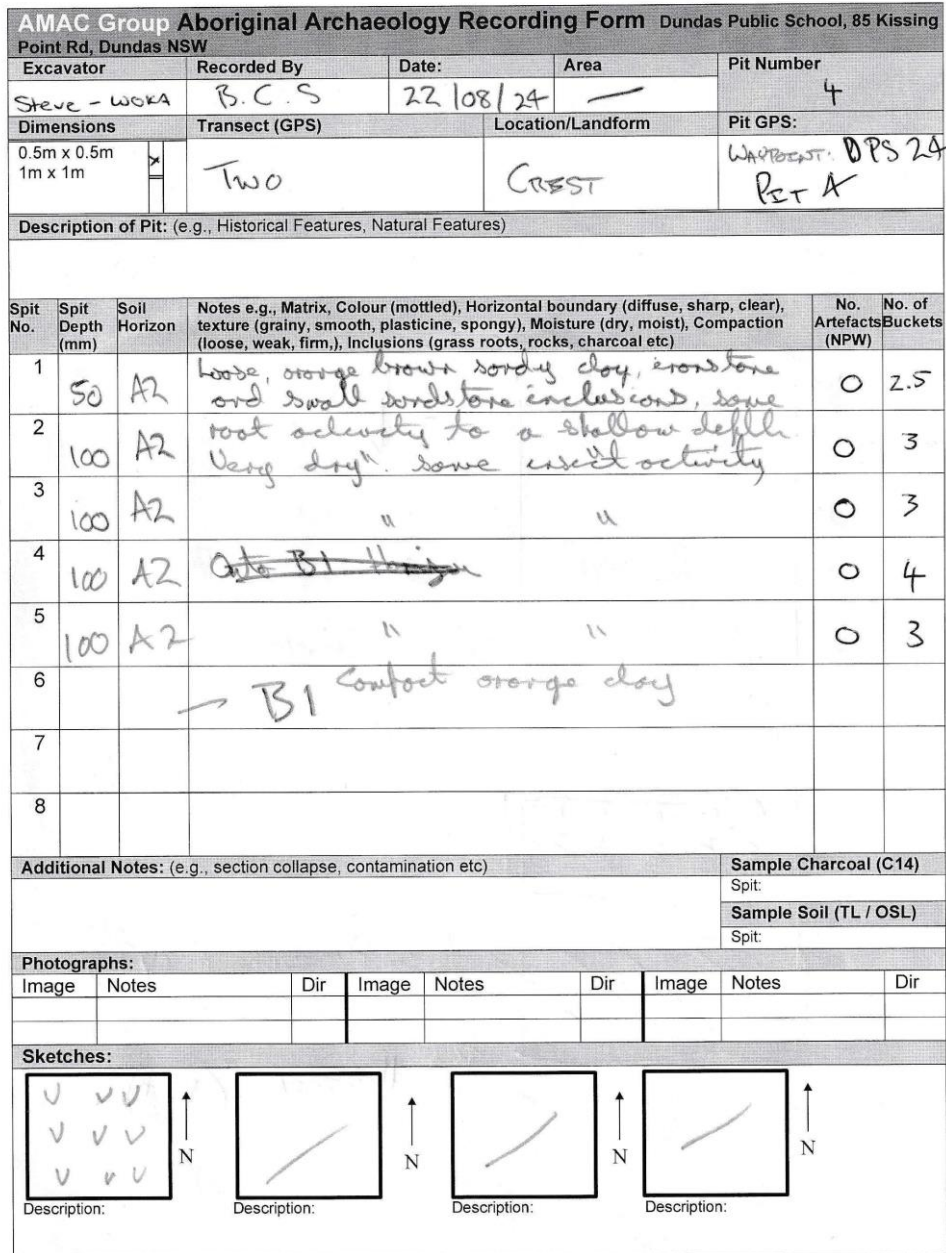 AMAC Group Aboriginal Archaeology Recording Form Dundas Public School, 85 Kissing
Point Rd, Dundas NSW
Excavator Recorded By Date: Area Pit Number
Steve - WOKA B.C.S 22/08/24 — 4
Dimensions Transect (GPS) Location/Landform Pit GPS:
0.5m x 0.5m x
1m x 1m
TWO CREST WAYPOINT: DPS 24
PIT A
Description of Pit: (e.g., Historical Features, Natural Features)
Spit No. Spit Depth (mm) Soil Horizon Notes e.g., Matrix, Colour (mottled), Horizontal boundary (diffuse, sharp, clear),
texture (grainy, smooth, plasticine, spongy), Moisture (dry, moist), Compaction
(loose, weak, firm,), Inclusions (grass roots, rocks, charcoal etc) No. Artefacts (NPW) No. of Buckets
1 50 A2 Loose, orange brown sandy clay, ironstone
and small sandstone inclusions, some 0 2.5
2 100 A2 root activity to a shallow depth
Very dry". some insect activity " 0 3
3 100 A2 " " 0 3
4 100 A2 Onto B1 Horizon 0 4
5 100 A2 " " 0 3
6 – B1 Compact orange clay
7
8
Additional Notes: (e.g., section collapse, contamination etc) Sample Charcoal (C14)
Spit:
Sample Soil (TL / OSL)
Spit:
Photographs:
Image Notes Dir Image Notes Dir Image Notes Dir
Sketches:
N N N N
Description: Description: Description: Description: